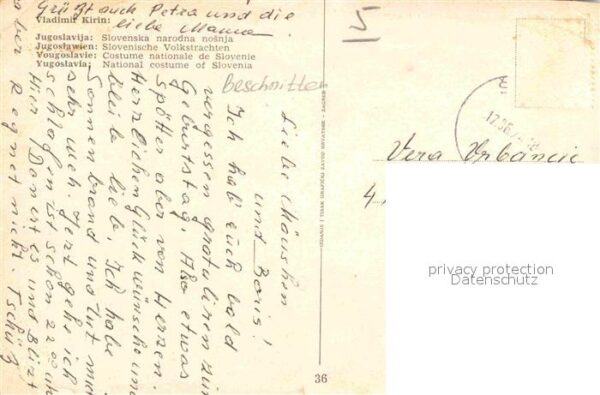 Grüßt auch Petra und die
liebe Mama.
Vladimir Kirin:
Jugoslavija: Slovenska narodna nošnja
Jugoslawien: Slovenische Volkstrachten
Yougoslavie: Costume nationale de Slovenie
Yugoslavia: National costume of Slovenia
5
Beschnitten
Liebe Mäuschen
und Boris!
Ich hab' euch bald
vergessen gratuliren zum
Geburtstag. Also etwas
spötter aber von Herzen.
Herzlichen Glückwünsche und
bleib liebe. Ich habe
Sonnenbrand und tut mir
sehr weh. Jetzt gehe ich
schlafen ist schon 22 00 uhr
Hier Donert es und Blizt
aber Regnet nicht. Tschüß
IZDANJE I TISAK GRAFIČKI ZAVOD HRVATSKE - ZAGREB
36
Vera Vrbancic
4
privacy protection
Datenschutz